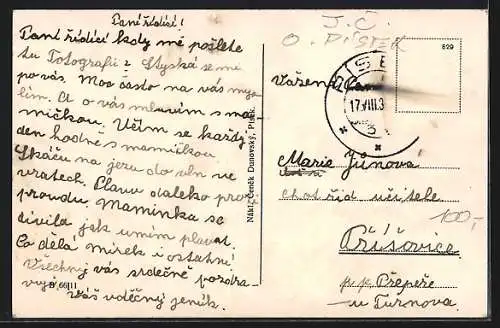 Paní řídící!
Paní řídící kdy mě pošlete
tu fotografii z Stýská se mi
po vás. Moc často na vás mys
lím. A o vás mluvím s ma
mičkou. Učím se každý
den hodně s mamičkou.
Skáču na jezu do vln ve
vratech. Plavu daleko proti
proudu. Maminka se
divila jak umím plavat.
Co dělá mirek i ostatní.
Všechny vás srdečně pozdra
vuje váš vděčný jeník.
D 66111
Nákl. Čeněk Dunovský, Písek.
J. Č.
O. PÍSEK
629
SE
17.VIII.3
3
Vážená Paní
Marie Jünová
choť říd učitele
100,-
Příšovice
p. p. Přepeře
u Turnova.